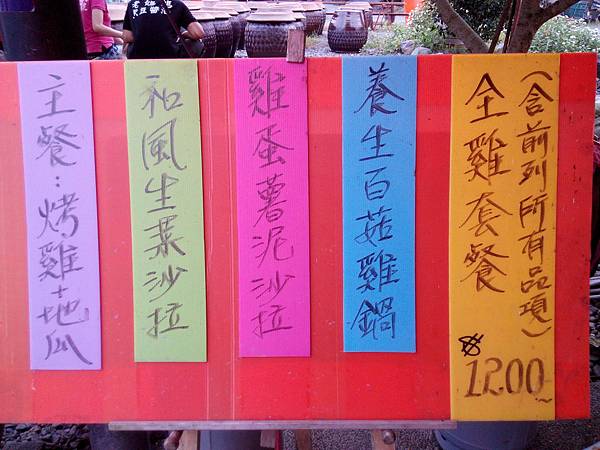 全雞套餐
(含前列所有品項)
1200
養生百菇雞鍋
雞蛋薯泥沙拉
和風生菜沙拉
主餐:烤雞地瓜